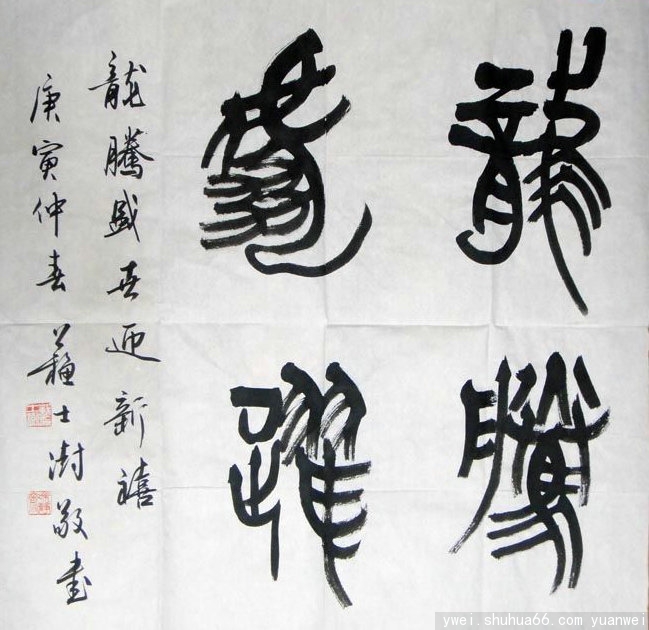 龍騰
虎躍
龍騰盛世迎新禧
庚寅仲春 蘇士澍敬書
ywei.shuhua66.com yuanwei